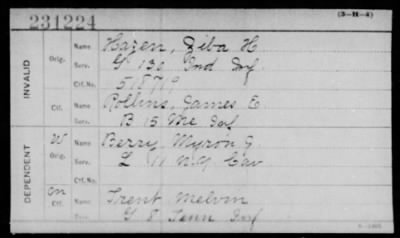 231224 (3—H—4)
INVALID
Orig. Name Hazen, Ziba H
Serv. G 130 Ind Inf
Ctf. No. 518719
Ctf. Name Rollins, James E.
Serv. B 15 Me Inf
DEPENDENT
W Orig. Name Berry, Myron G.
Serv. L 11 N.Y. Cav
Ctf. No.
Ctf. Name Trent, Melvin
Serv. G 8 Tenn Inf